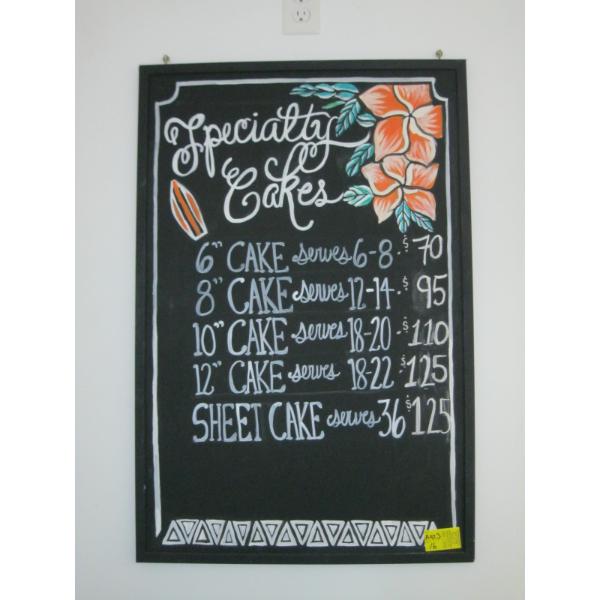 Specialty
Cakes
6" CAKE serves 6-8 · $70
8" CAKE serves 12-14 · $95
10" CAKE serves 18-20 · $110
12" CAKE serves 18-22 $125
SHEET CAKE serves 36 $125
16